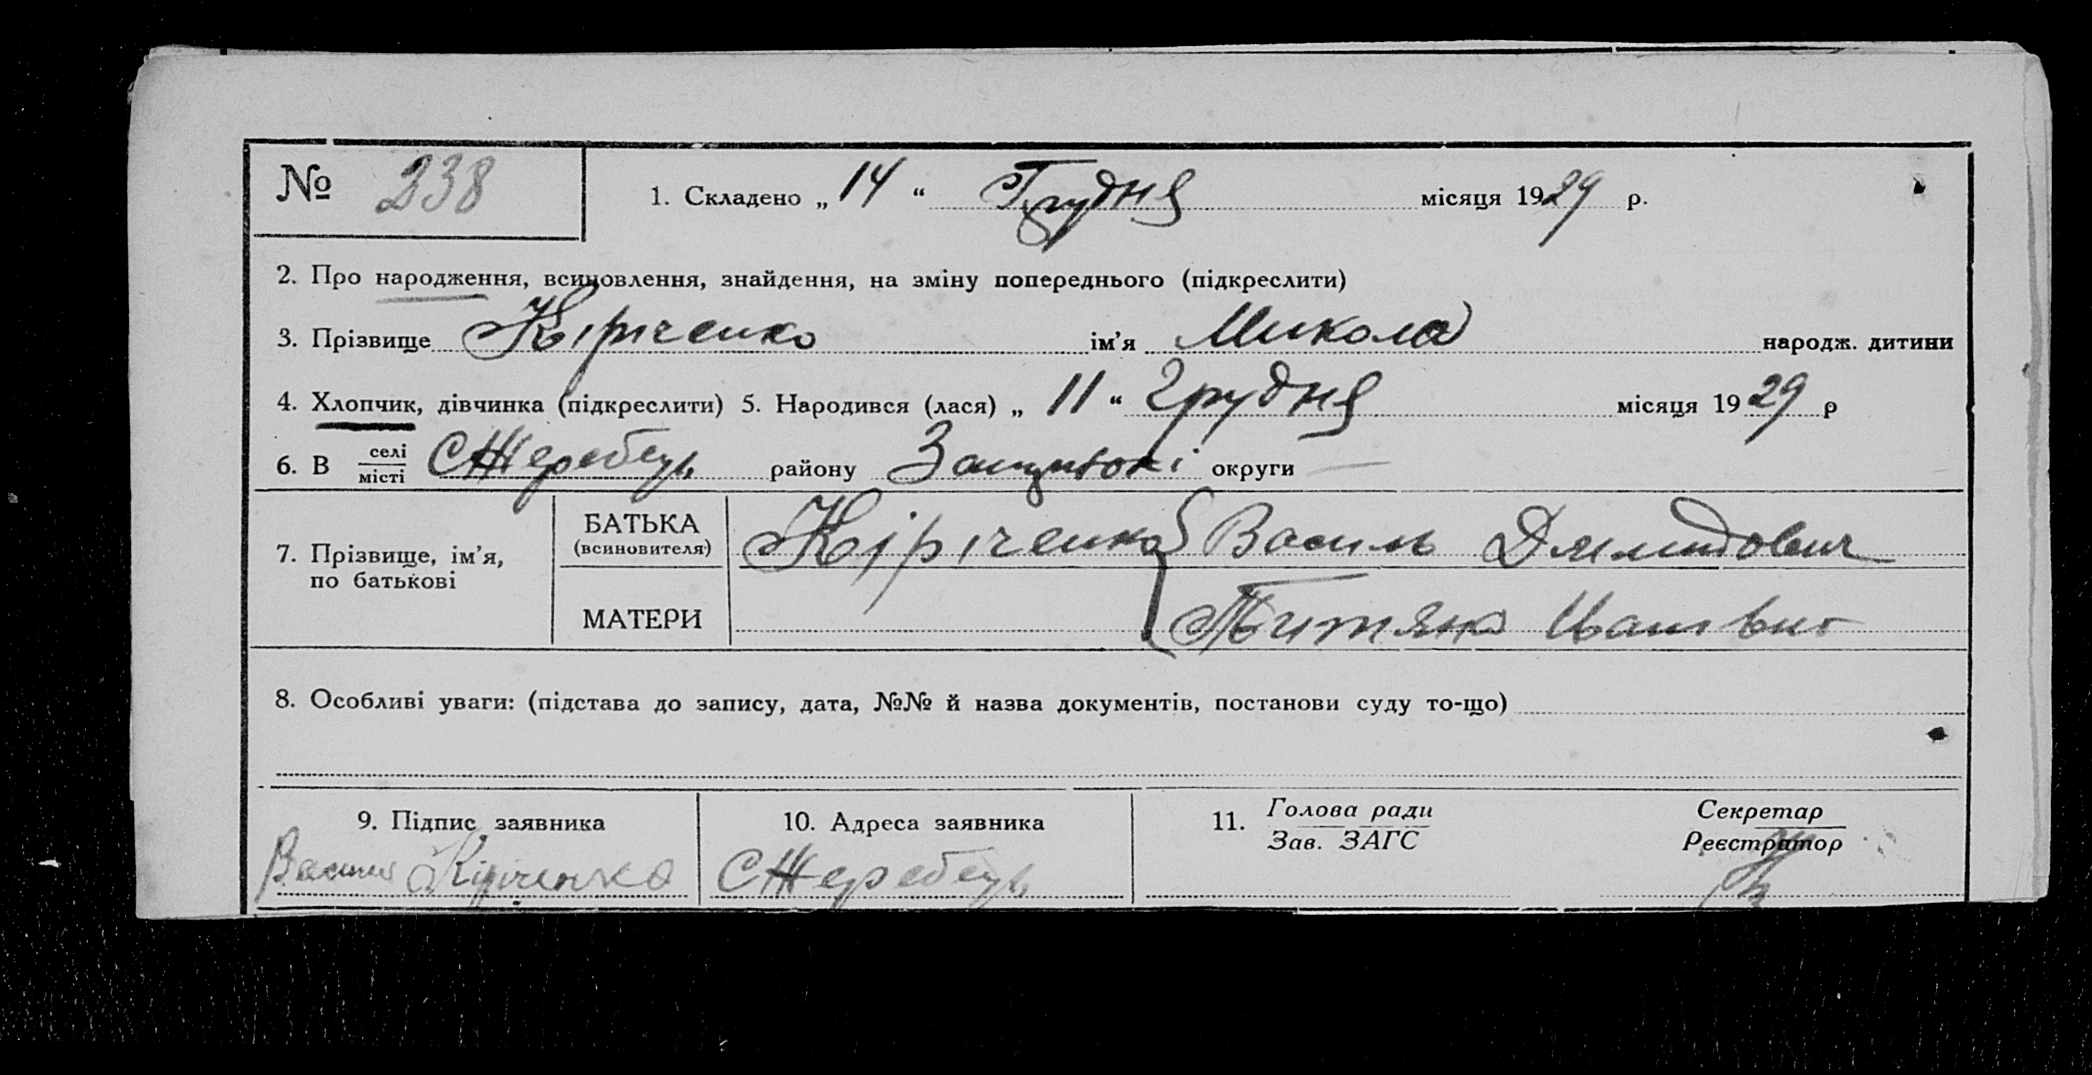 № 238 1. Складено „ 14 “ Грудня місяця 1929 р.
2. Про народження, всиновлення, знайдення, на зміну попереднього (підкреслити)
3. Прізвище Кіріченко ім’я Микола народж. дитини
4. Хлопчик, дівчинка (підкреслити) 5. Народився (лася) „ 11 “ Грудня місяця 1929 р
6. В селі місті С Жеребець району округи
7. Прізвище, ім’я, по батькові
БАТЬКА (всиновителя) Кіріченко Василь
МАТЕРИ
8. Особливі уваги: (підстава до запису, дата, №№ й назва документів, постанови суду то-що)
9. Підпис заявника 10. Адреса заявника 11. Голова ради Зав. ЗАГС Секретар Реєстратор
Кіріченко С Жеребець